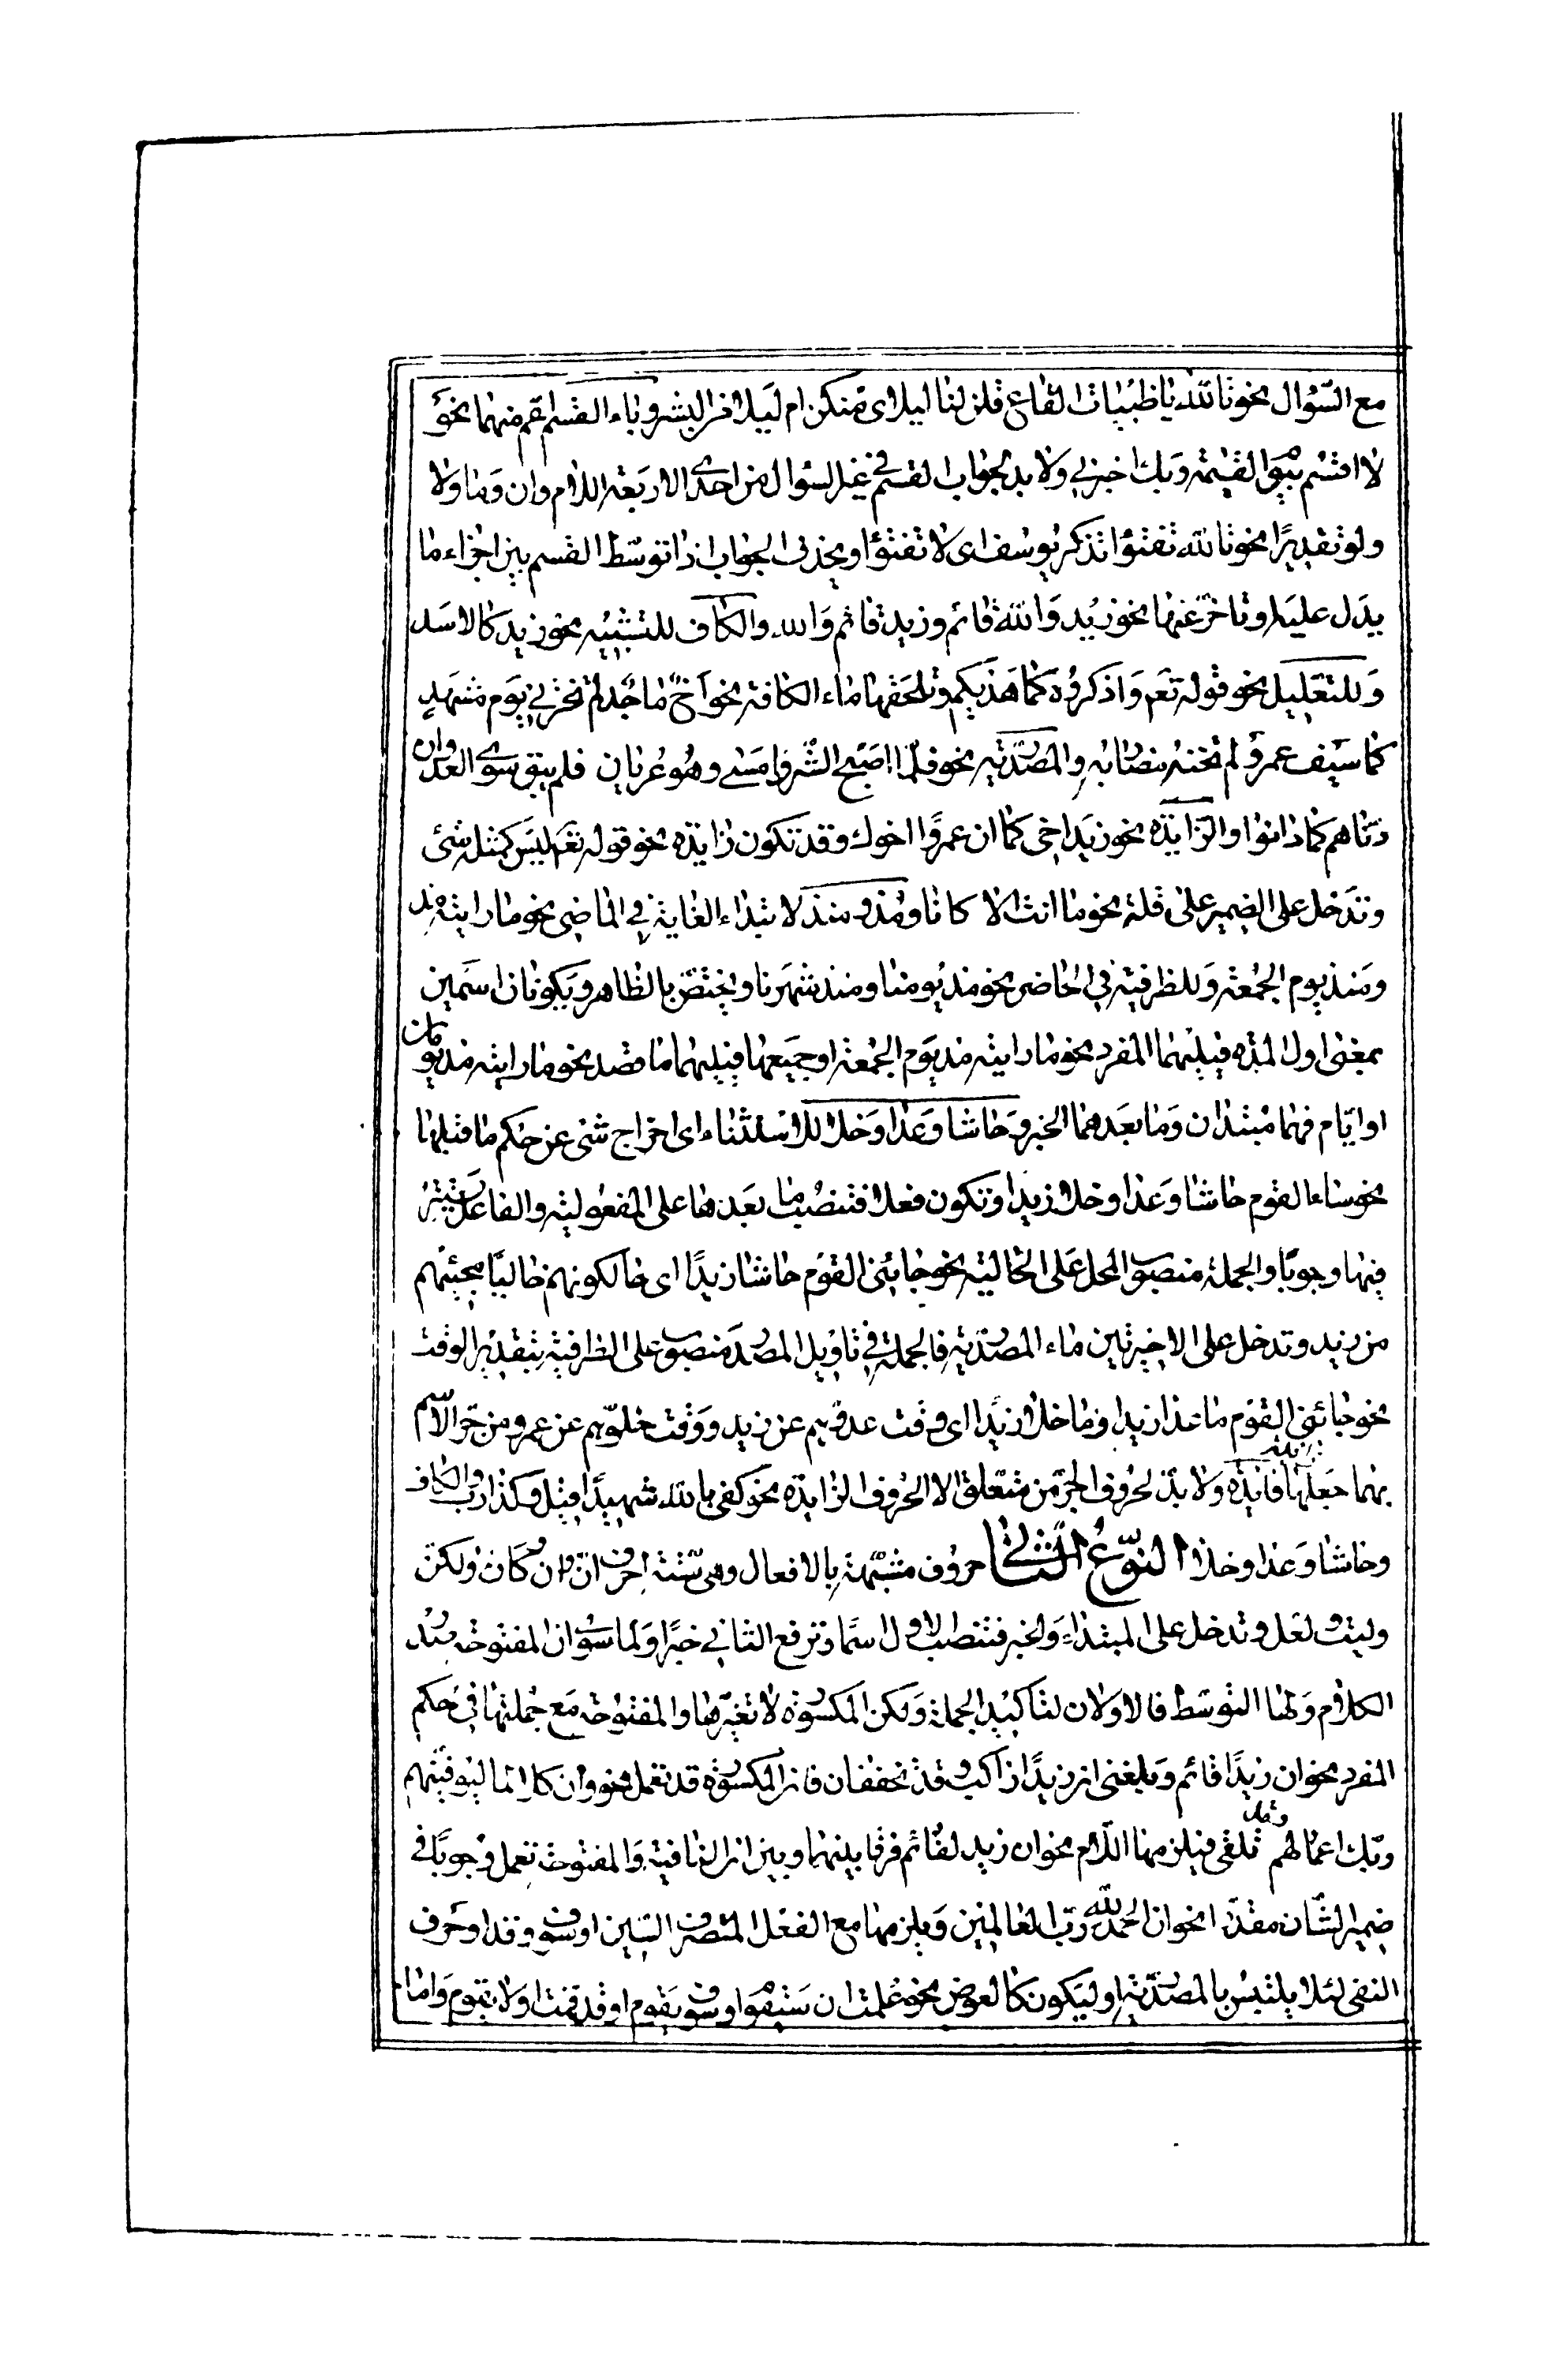 مع السّؤال نحو تالله يا ظبيات القاع قلن لنا ليلاى منكن ام ليلى من البشر وباء القسم اعم منهما نحو
لا اقسم بيوم القيمة وبك اخبرني ولا بد لجواب القسم في غير السؤال من احدى الاربعة اللام وان وما ولا
ولو تقديرًا نحو تالله تفتؤا تذكر يوسف اى لا تفتؤا ويحذف الجواب اذا توسّط القسم بين اجزاء ما
يدل عليه او تاخر عنها نحو زيد والله قائم وزيد قائم والله والكاف للتشبيه نحو زيد كالاسد
وللتعليل نحو قوله تعم واذكروه كما هديكم وتلحقها ماء الكافة نحو اخٌ ماجدٌ لم يخزني يوم مشهد
كما سيف عمرو لم تخنه مضاربه والمصدرية نحو فلمّا اصبح الشّر وامسى وهو عريان فلم يبق سوى العدوان
دنّاهم كما دانوا والزايدة نحو زيد اخى كما ان عمروًا اخوك وقد تكون زايدة نحو قوله تعم ليس كمثله شئ
وتدخل على الضمير على قلة نحو ما انت الا كانا ومذ ومنذ لابتداء الغاية في الماضي نحو ما رايته مذ
ومنذ يوم الجمعة وللظرفية في الحاضر نحو مذ يومنا ومنذ شهرنا ويختص بالظاهر ويكونان اسمين
بمعنى اول المدة فيليهما المفرد نحو ما رايته مذ يوم الجمعة او جميعها فيليهما ما قصد نحو ما رايته مذ يومان
او ايّام فهما مبتدان وما بعدهما الخبر وحاشا وعدا وخلا للاستثناء اى اخراج شئ عن حكم ما قبلها
نحو ساء القوم حاشا وعدا وخلا زيد وتكون فعلا فتنصب ما بعدها على المفعولية والفاعل مستتر
فيها وجوبًا والجملة منصوب المحل على الحالية نحو جائني القوم حاشا زيدًا اى حالكونهم خاليًا مجيئهم
من زيد وتدخل على الاخيرتين ماء المصدرية فالجملة في تاويل المصدر منصوب على الظرفية بتقدير الوقت
نحو جائني القوم ما عدا زيدا وما خلا زيدًا اى وقت عدوّهم عن زيد ووقت خلوّهم عن عمرو ومن جر الاسم
بهما جعلها زايدة ولا بدّ لحروف الجرّ من متعلق الا الحروف الزايدة نحو كفى بالله شهيدًا قيل وكذا ربّ والكاف
وحاشا وعدا وخلا النّوع الثاني حروف مشبّهة بالافعال وهى ستة احرف انّ وان وكان ولكنّ
وليت ولعل وتدخل على المبتداء والخبر فتنصب الاول اسمًا وترفع الثاني خبرًا ولما سوى ان المفتوحة صدر
الكلام ولها التوسّط فالاولان لتاكيد الجملة ولكن المكسورة لا تغيّرها والمفتوحة مع جملتها في حكم
المفرد نحو ان زيدًا قائم وبلغني ان زيدًا راكب وقد تخففان فان المكسورة قد تعمل نحو وان كلا لما ليوفينهم
ربّك اعمالهم وقد تلغى فيلزمها اللّام نحو ان زيد لقائم فرقا بينهما وبين ان النافية والمفتوحة تعمل وجوبًا في
ضمير الشّان مقدّرا نحو ان الحمد لله ربّ العالمين ويلزمها مع الفعل المتصرف السّين او سوف وقد او حرف
النفى لئلا يلتبس بالمصدّرية او ليكون كالعوض نحو علمت ان سيقوم او سوف يقوم او قد قمت او لا يقوم واما